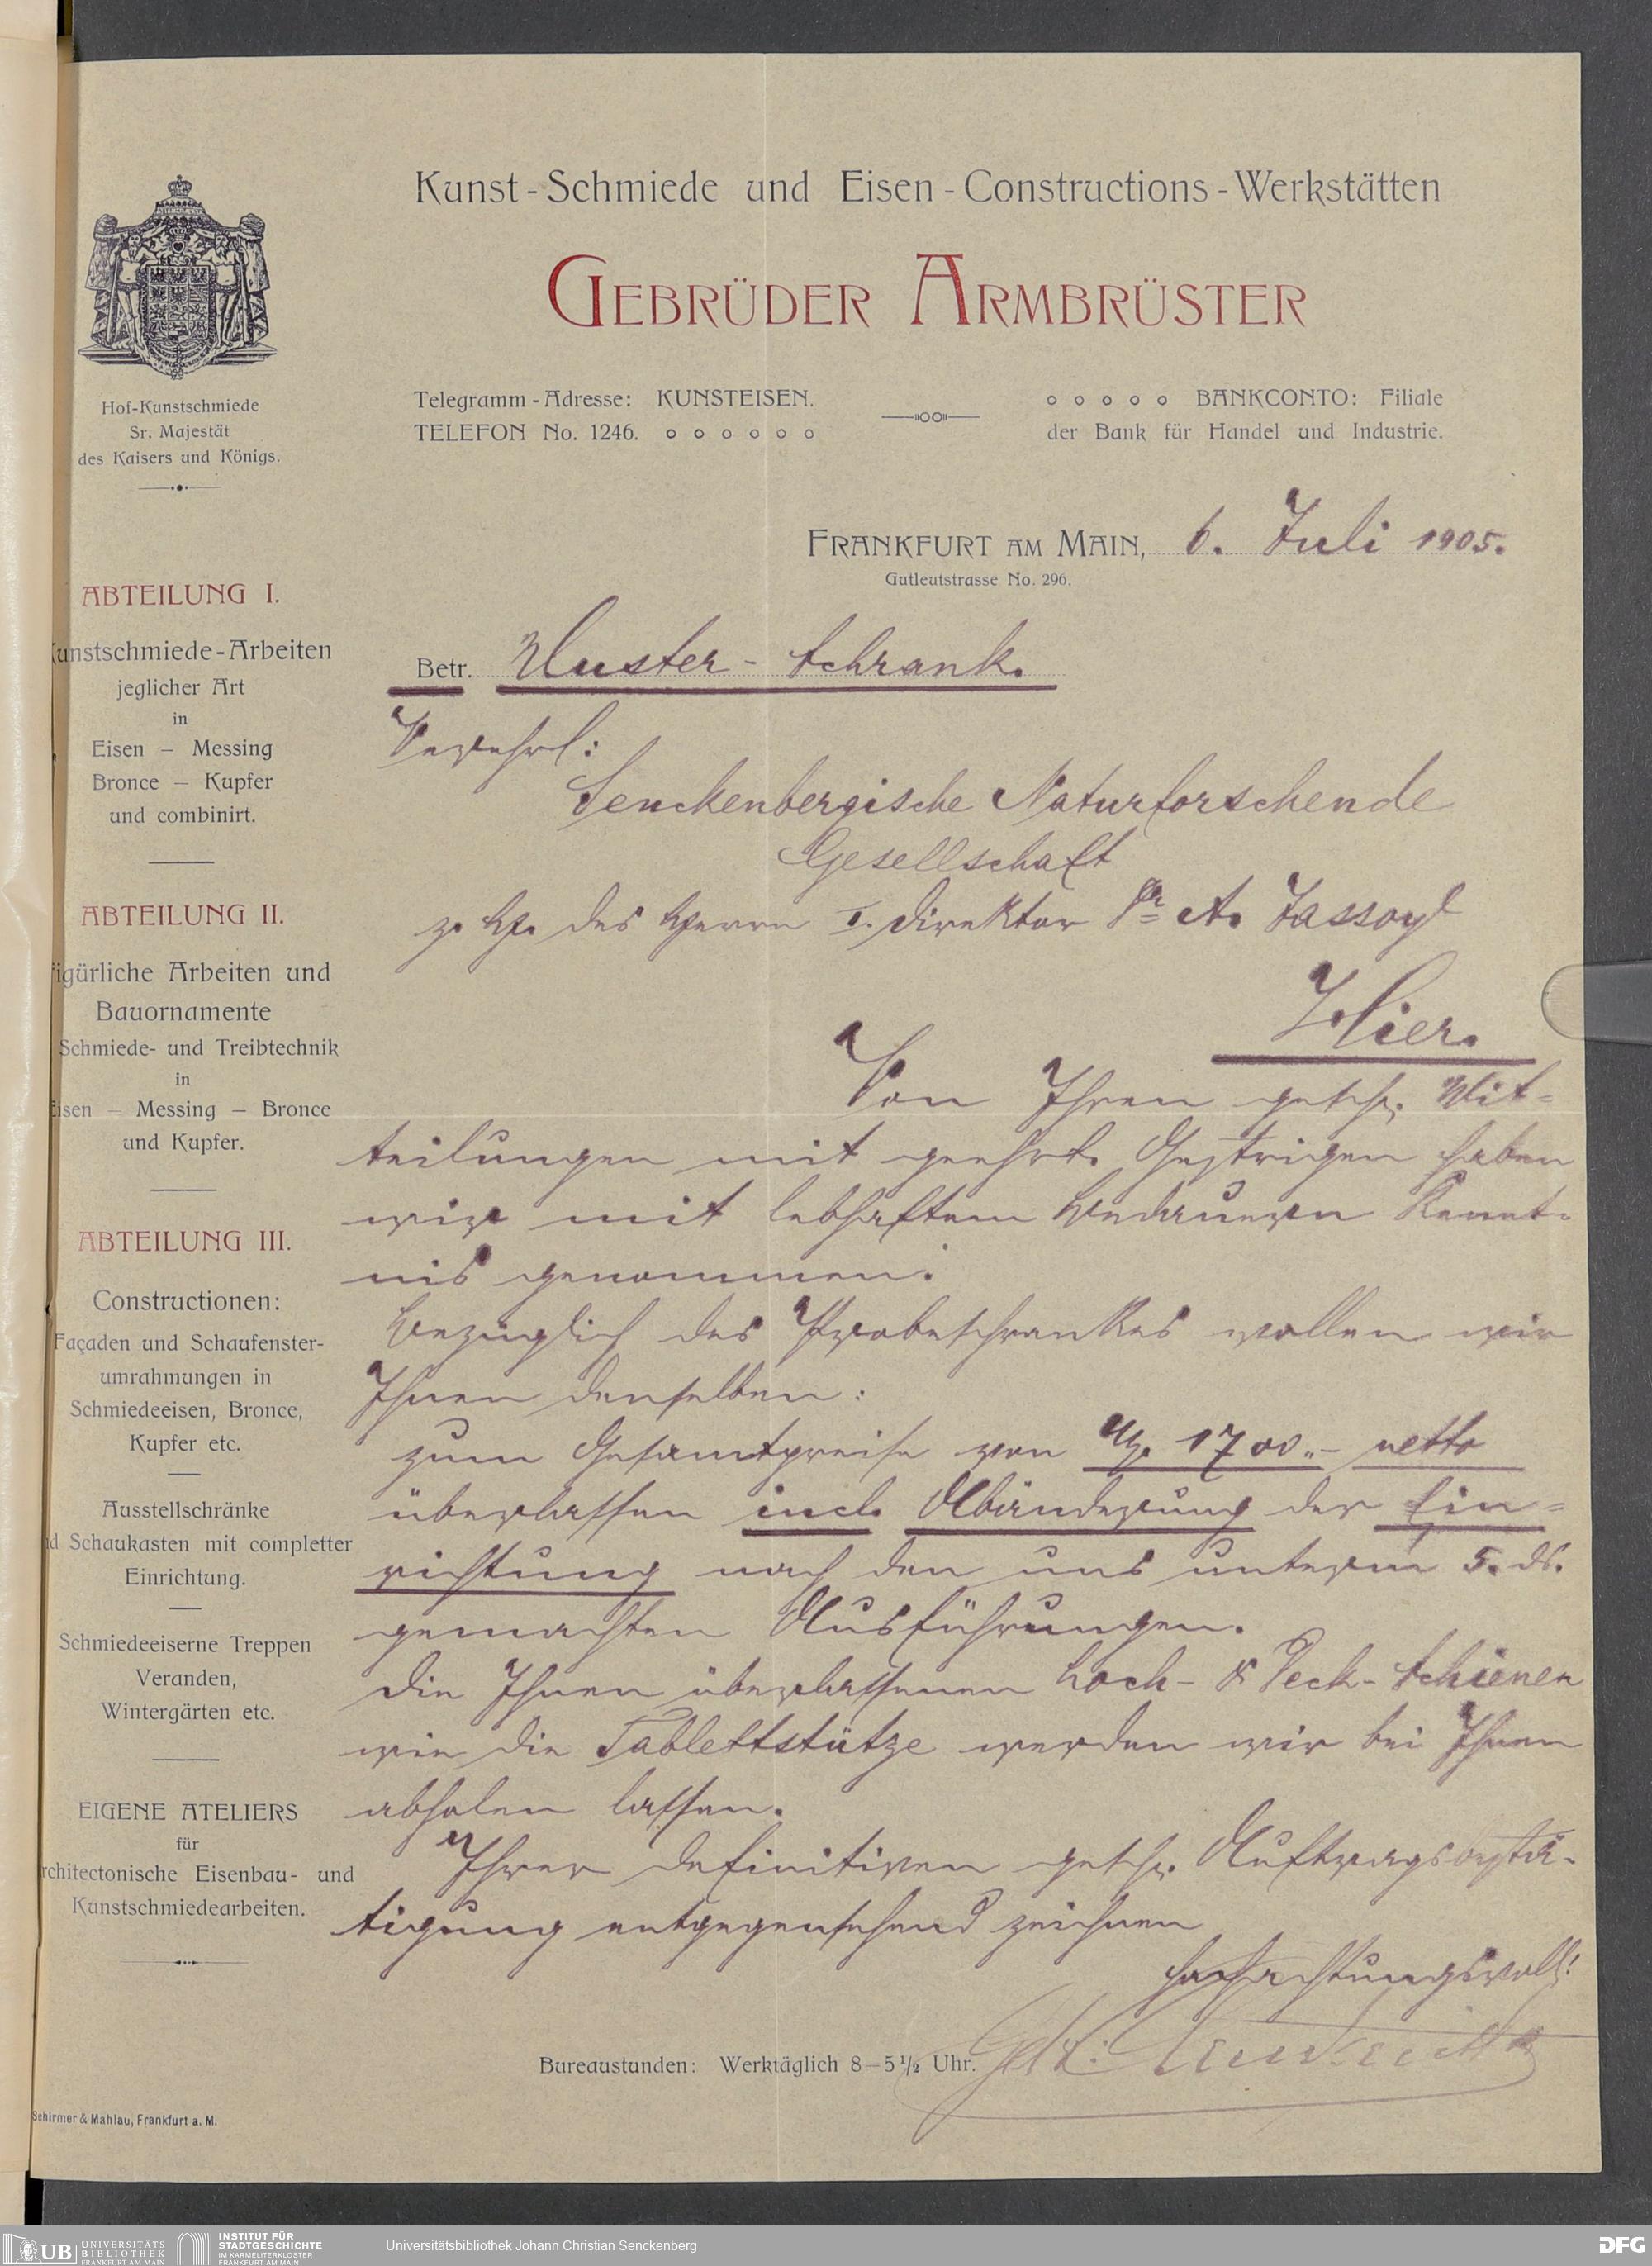 Kunst-Schmiede und Eisen-Constructions-Werkstätten
GEBRÜDER ARMBRÜSTER
Telegramm-Adresse: KUNSTEISEN.
TELEFON No. 1246.
BANKCONTO: Filiale
der Bank für Handel und Industrie.
Hof-Kunstschmiede
Sr. Majestät
des Kaisers und Königs.
FRANKFURT AM MAIN, 6. Juli 1905.
Gutleutstrasse No. 296.
ABTEILUNG I.
unstschmiede-Arbeiten
jeglicher Art
in
Eisen – Messing
Bronce – Kupfer
und combinirt.
ABTEILUNG II.
igürliche Arbeiten und
Bauornamente
Schmiede- und Treibtechnik
in
Eisen – Messing – Bronce
und Kupfer.
ABTEILUNG III.
Constructionen:
Façaden und Schaufenster-
umrahmungen in
Schmiedeeisen, Bronce,
Kupfer etc.
Ausstellschränke
d Schaukasten mit completter
Einrichtung.
Schmiedeeiserne Treppen
Veranden,
Wintergärten etc.
EIGENE ATELIERS
für
rchitectonische Eisenbau- und
Kunstschmiedearbeiten.
Betr. Muster-Schrank.
Verehrl:
Senckenbergische Naturforschende
Gesellschaft
z. Hd. des Herrn I. Direktor Dr A. Jassoy
Hier.
Von Ihren gesch. Mit=
teilungen mit geehrt. Gestrigen haben
wir mit lebhaftem Bedauern Kennt=
nis genommen.
Bezüglich des Probeschrankes wollen wir
Ihnen denselben:
zum Gesamtpreise von M. 1700.- netto
überlassen incl. Abänderung der Ein=
richtung nach den uns unterm 5. ds.
gemachten Ausführungen.
Die Ihnen überlassenen Loch- & Deck-Schienen
wie die Tablettstütze werden wir bei Ihnen
abholen lassen.
Ihrer definitiven gesch. Auftragsbestä-
tigung entgegensehend zeichnen
Hochachtungsvoll!
Gebr. Armbrüster
Bureaustunden: Werktäglich 8–5 1/2 Uhr.
Schirmer & Mahlau, Frankfurt a. M.
UB UNIVERSITÄTS
BIBLIOTHEK
FRANKFURT AM MAIN
INSTITUT FÜR
STADTGESCHICHTE
IM KARMELITERKLOSTER
FRANKFURT AM MAIN
Universitätsbibliothek Johann Christian Senckenberg
DFG